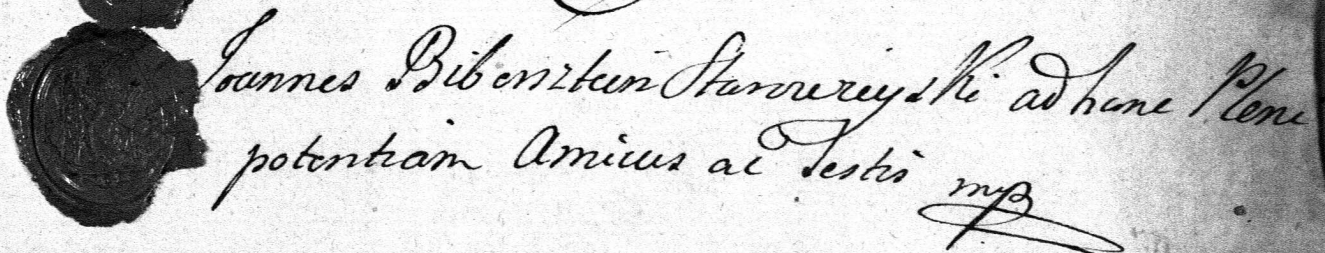 Joannes Bibersztein Starowieyski ad hanc Pleni
potentiam Amicus ac Testis mp